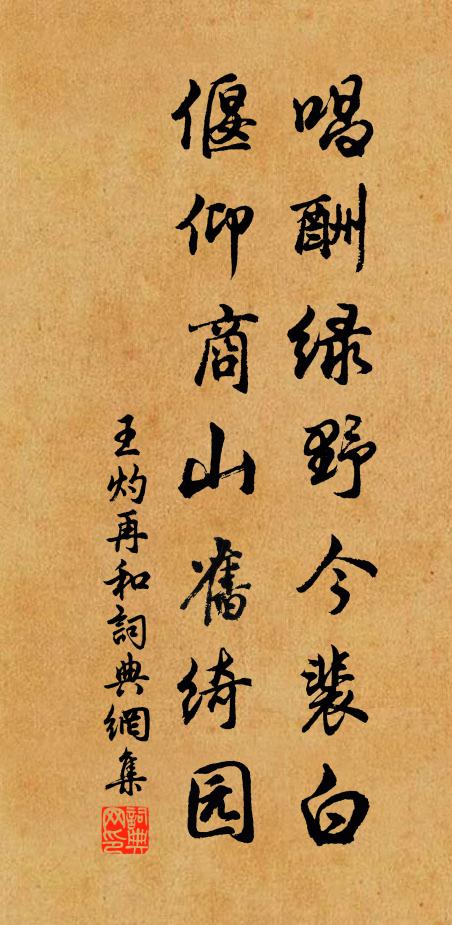 唱酬绿野今裴白
偃仰商山舊绮园
王灼再和詞典網集
詞典网印